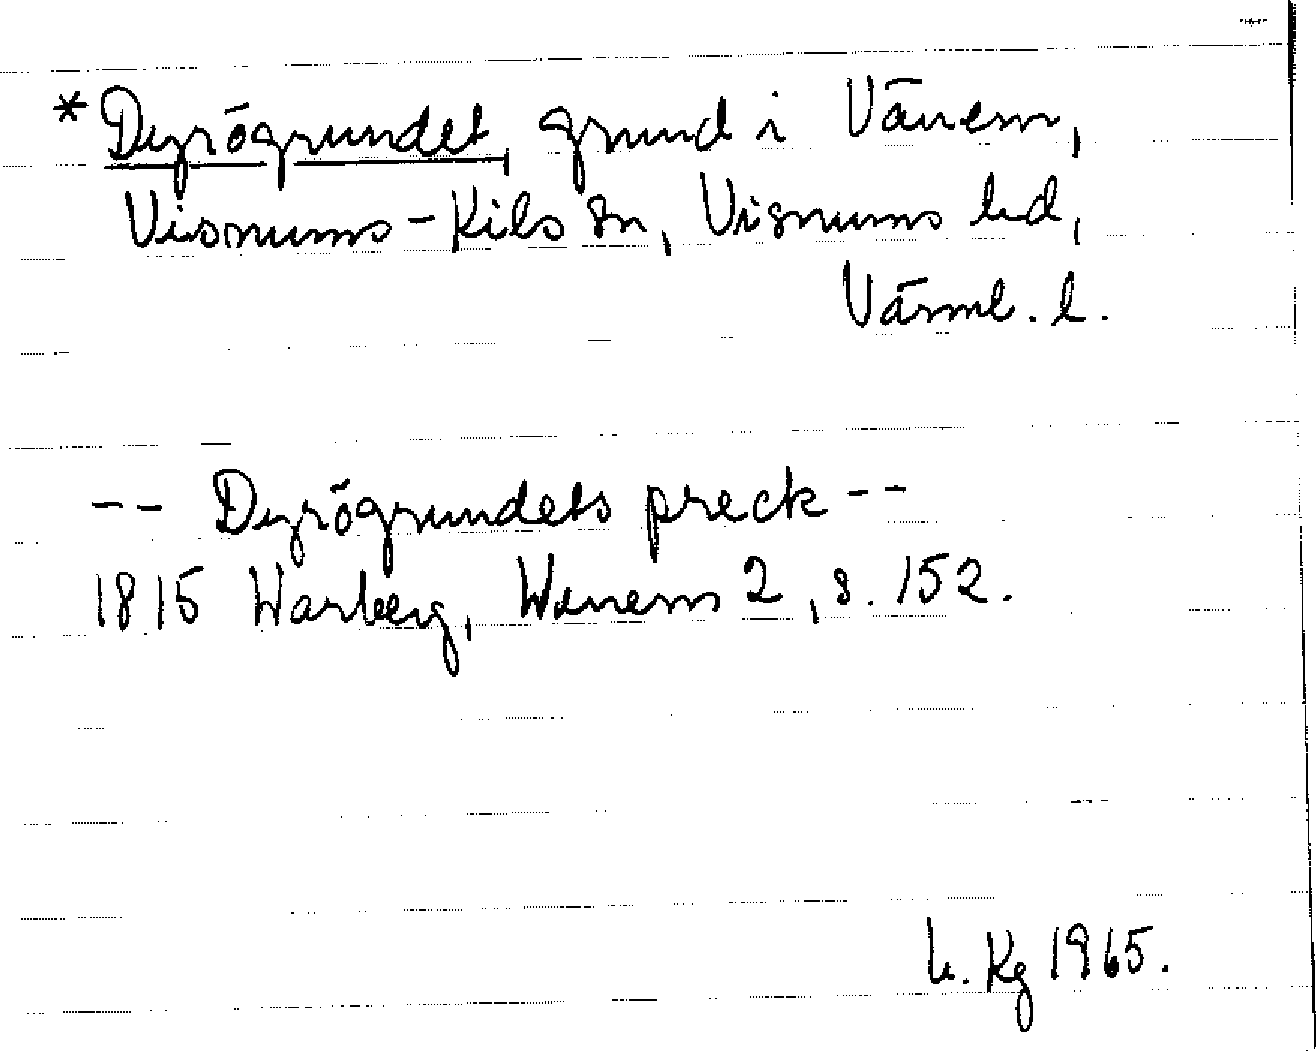 *Dyrögrundet, grund i Vänern,
Visnums-Kils sn, Visnums hd,
Värml. l.
-- Dyrögrundets preck --
1815 Warberg, Wenern 2, s. 152.
h. Kg 1965.